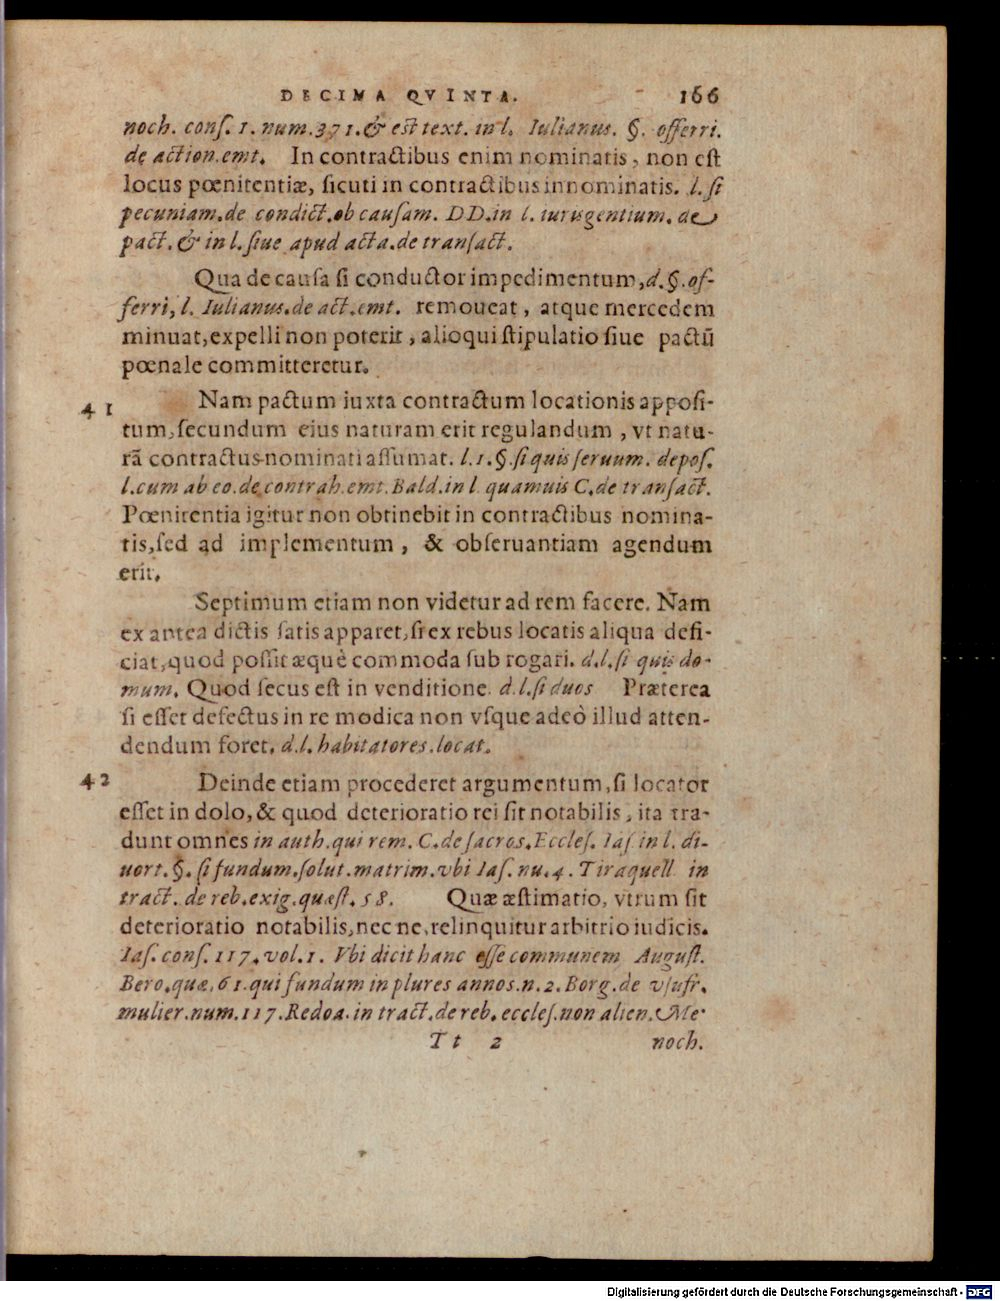 DECIMA QVINTA. 166
noch. conſ. 1. num. 371. & est text. in l. Iulianus. §. offerri.
de action. emt. In contractibus enim nominatis, non est
locus pœnitentiæ, ſicuti in contractibus innominatis. l. ſi
pecuniam. de condict. ob cauſam. DD. in l. iurisgentium. de
pact. & in l. ſiue apud acta. de tranſact.
Qua de cauſa ſi conductor impedimentum, d. §. of-
ferri, l. Iulianus. de act. emt. remoueat, atque mercedem
minuat, expelli non poterit, alioqui ſtipulatio ſiue pactū
pœnale committeretur.
41 Nam pactum iuxta contractum locationis appoſi-
tum, ſecundum eius naturam erit regulandum, vt natu-
rā contractus nominati aſſumat. l. 1. §. ſi quis ſeruum. depoſ.
l. cum ab eo. de contrah. emt. Bald. in l. quamuis C. de tranſact.
Pœnitentia igitur non obtinebit in contractibus nomina-
tis, ſed ad implementum, & obſeruantiam agendum
erit.
Septimum etiam non videtur ad rem facere. Nam
ex antea dictis ſatis apparet, ſi ex rebus locatis aliqua defi-
ciat, quod poſſit æquè commoda ſub rogari. d. l. ſi quis do-
mum. Quod ſecus eſt in venditione. d. l. ſi duos Præterea
ſi eſſet defectus in re modica non vſque adeò illud atten-
dendum foret. d. l. habitatores. locat.
42 Deinde etiam procederet argumentum, ſi locator
eſſet in dolo, & quod deterioratio rei ſit notabilis, ita tra-
dunt omnes in auth. qui rem. C. de ſacros. Eccleſ. Iaſ in l. di-
uort. §. ſi fundum. ſolut. matrim. vbi Iaſ. nu. 4. Tiraquell in
tract. de reb. exig. quæſt. 58. Quæ æſtimatio, vtrum ſit
deterioratio notabilis, nec ne, relinquitur arbitrio iudicis.
Iaſ. conſ. 117. vol. 1. Vbi dicit hanc eſſe communem Auguſt.
Bero. quæ. 61. qui fundum in plures annos. n. 2. Borg. de vſufr.
mulier. num. 117. Redoa. in tract. de reb. eccleſ. non alien. Me-
Tt 2 noch.
Digitalisierung gefördert durch die Deutsche Forschungsgemeinschaft - DFG